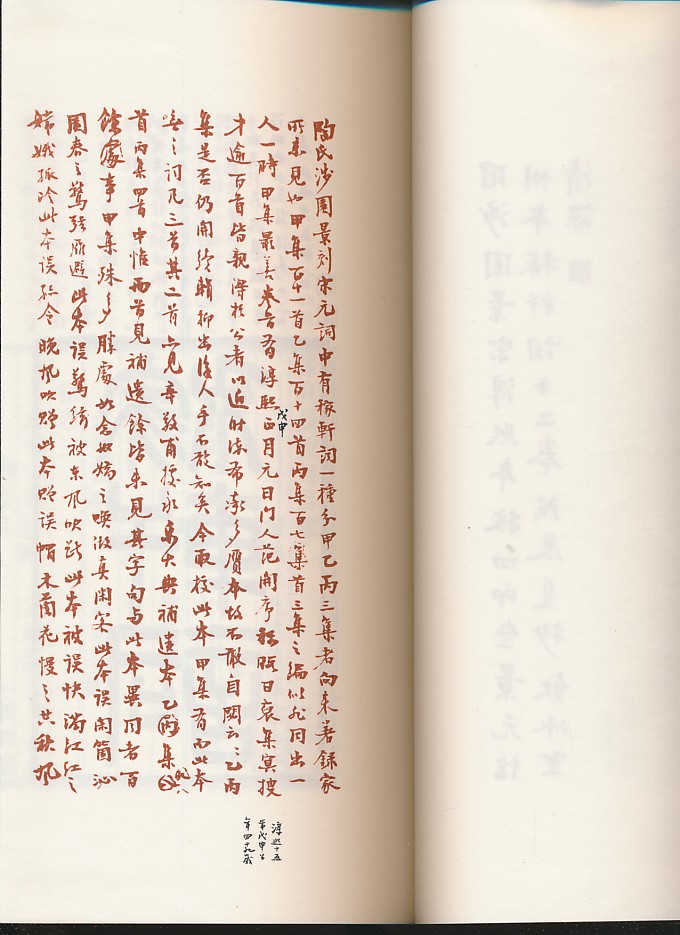 陶氏涉園景刻宋元詞中有稼軒詞一種分甲乙丙三集者向來著錄家
所未見也甲集百十一首乙集百十四首丙集百七首三集之編似非同出一
人一時甲集最善卷首有淳熙戊申正月元日門人范開序稱暇日裒集冥搜
才逾百首皆親得於公者以近時流布率多贗本故不敢自閟云云乙丙
集是否仍開續輯抑出後人手不敢知矣今取校此本甲集有而此本
無之詞凡三首其二首亦見辛敬甫據永樂大典補遺本乙集八
首丙集四首中惟兩首見補遺餘皆未見其字句與此本異同者百
餘處事甲集殊多勝處如念奴嬌之喚做真閑客此本誤閑箇沁
園春之驚弦雁避此本誤驚綺被東風吹斷此本被誤快滿江紅之
嫦娥孤冷此本誤孤令晚風吹贈此本贈誤帽木蘭花慢之共秋風
淳熙十五
年戊申公
年四十九歲